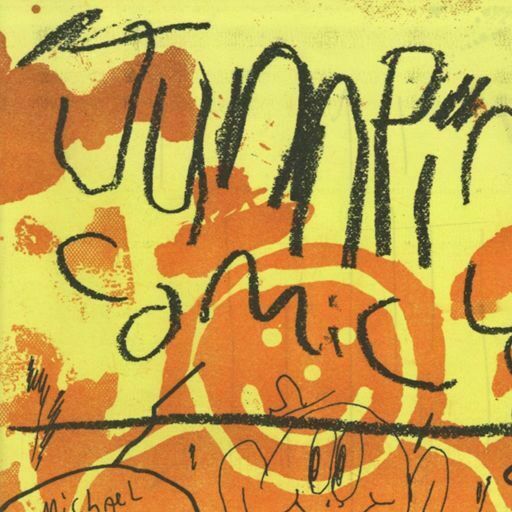 JumPin
comic
MichaeL